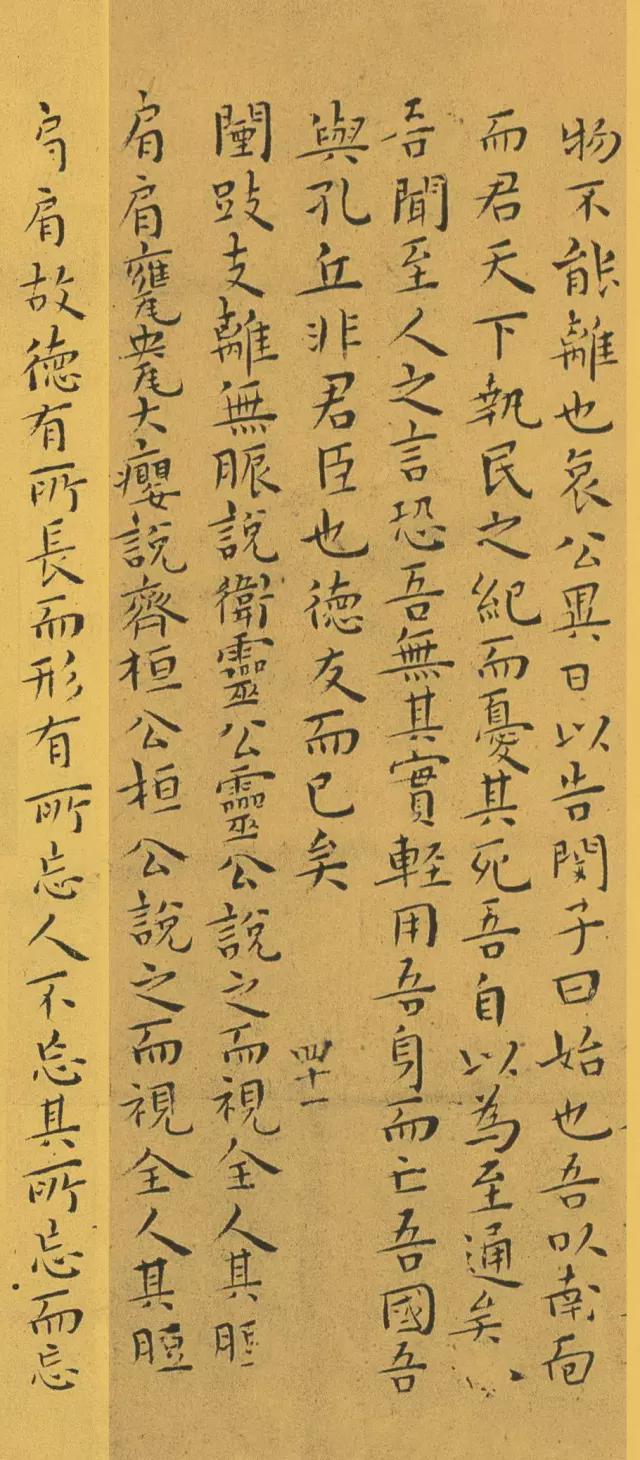 物不能離也哀公異日以告閔子曰始也吾以南面
而君天下執民之紀而憂其死吾自以為至通矣
吾聞至人之言恐吾無其實軽用吾身而亡吾國吾
與孔丘非君臣也徳友而已矣 四十一
闉跂支離無脤說衛靈公靈公說之而視全人其脰
肩肩甕㼜大癭說齊桓公桓公說之而視全人其脰
肩肩故徳有所長而形有所忘人不忘其所忘而忘